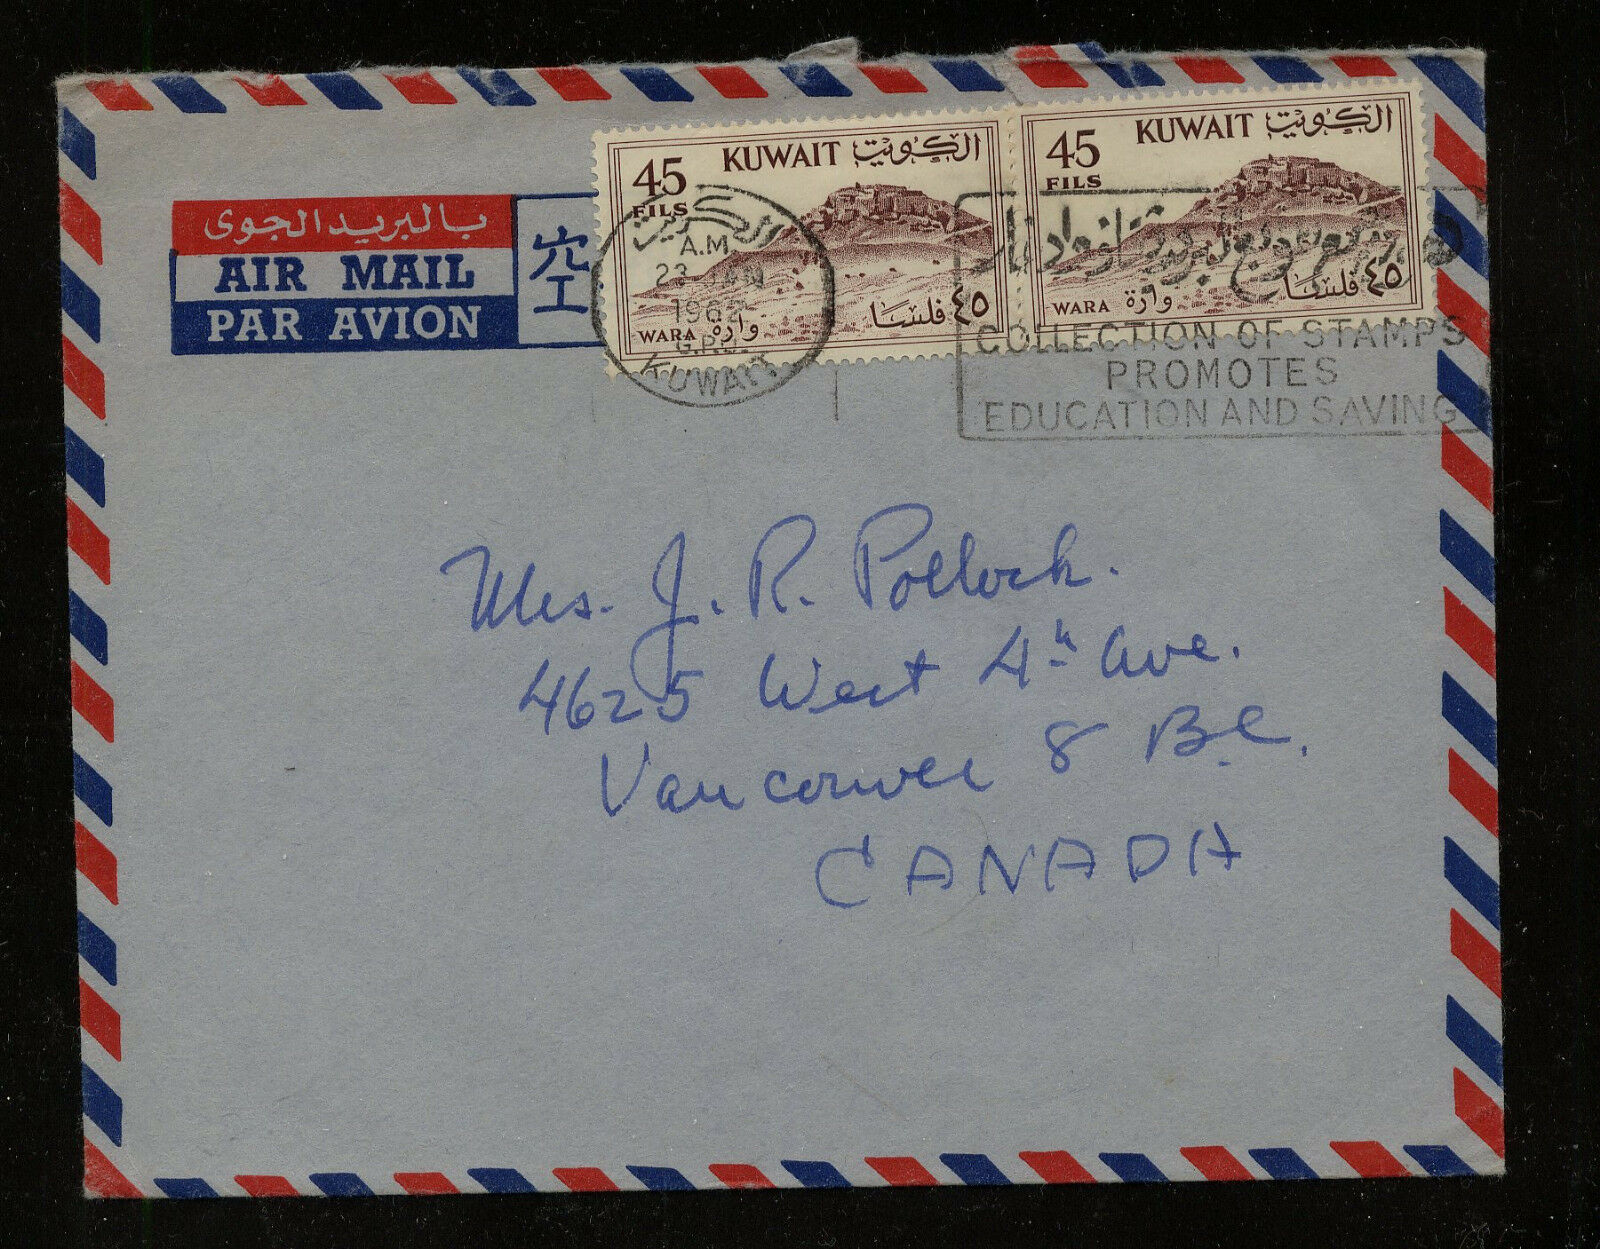 بالبريد الجوى
AIR MAIL
PAR AVION
空
45 KUWAIT الكويت
FILS
WARA وارة ٤٥ فلسا
45 KUWAIT الكويت
FILS
WARA وارة ٤٥ فلسا
الكويت
A.M
23 JAN
1962
G.P.O.
KUWAIT
COLLECTION OF STAMPS
PROMOTES
EDUCATION AND SAVING
Mrs. J. R. Pollock.
4625 West 4th Ave.
Vancouver 8 B.C.
CANADA